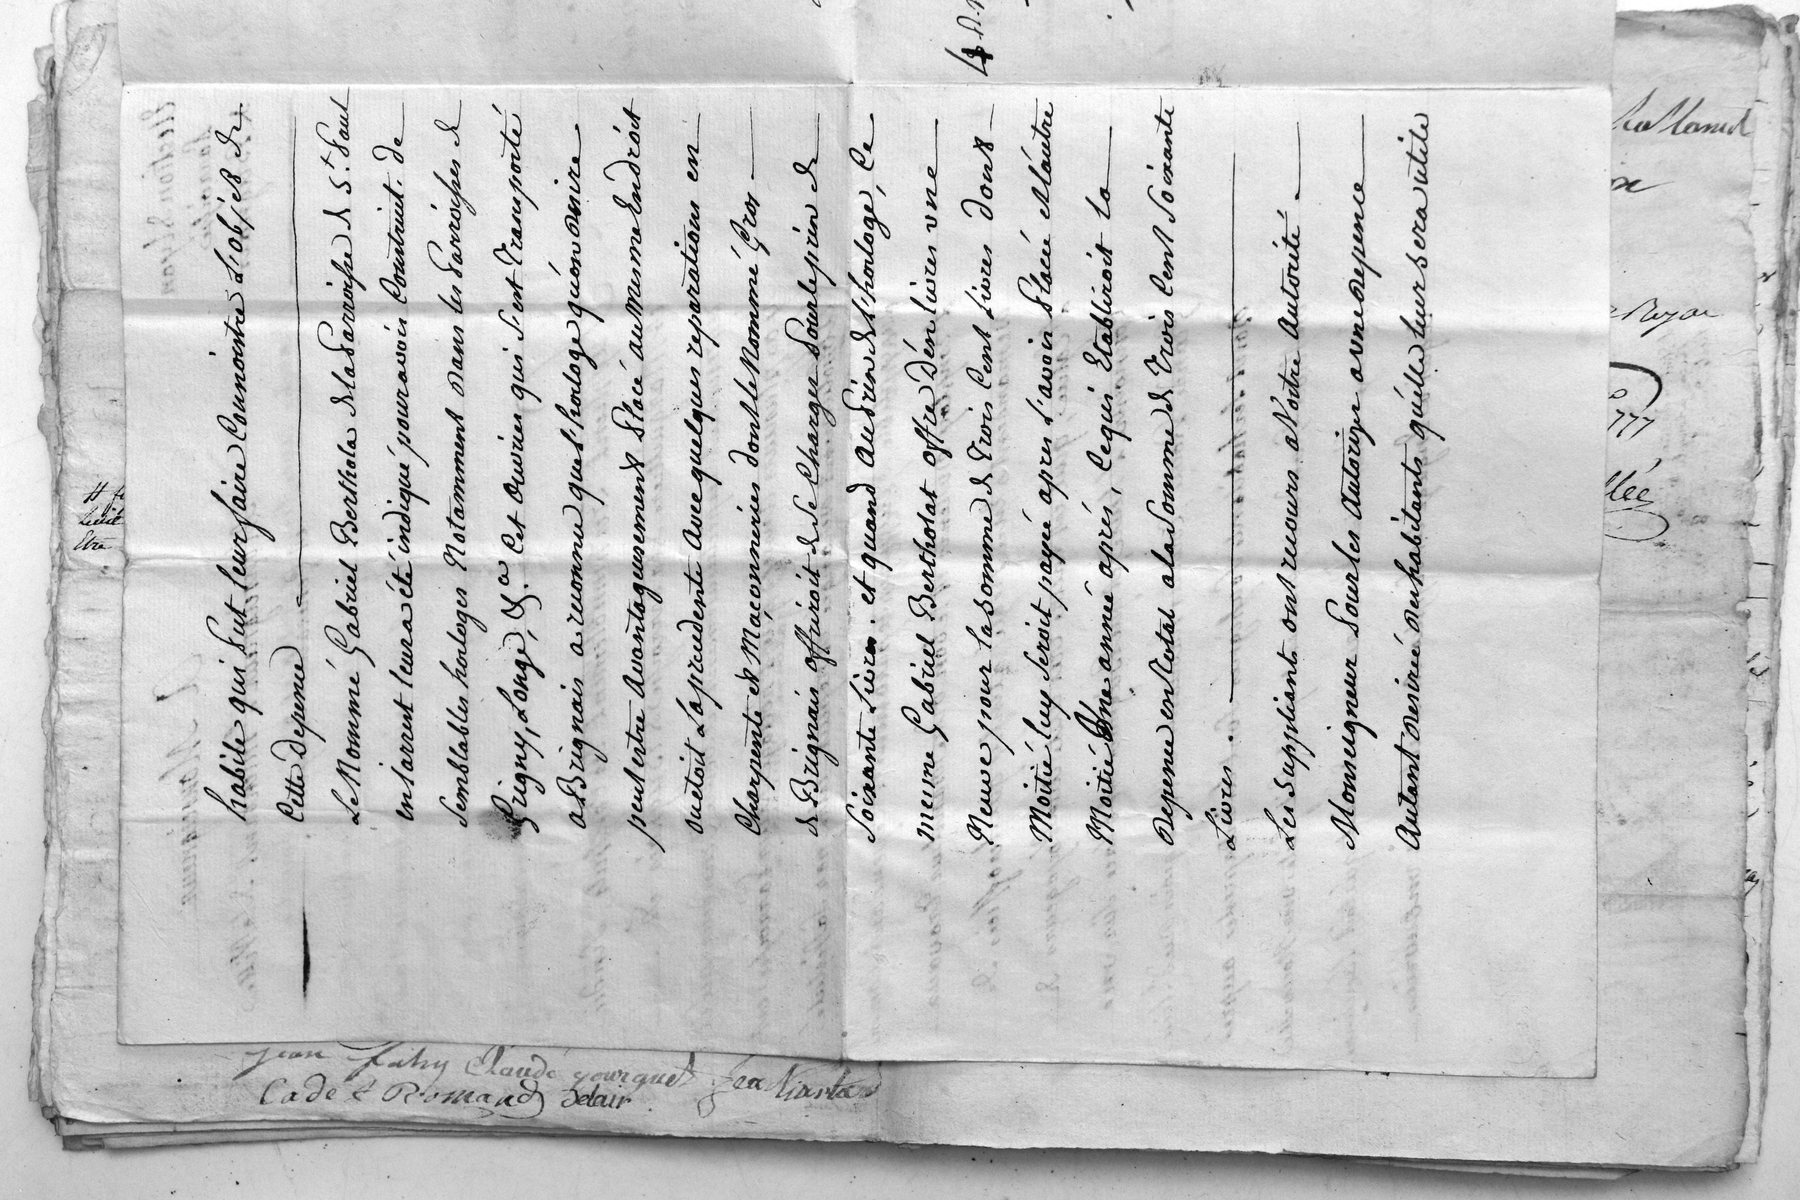 habile qui Put leur faire Connoitre L'objet de
Cette depense
Le Nommé Gabriel Berthola de la Parroisse de St. Paul
en Jarrest leur a été indiqué pour avoir Construit. de
Semblables horloges Notamment dans les Parroisses de
Grigny, Longe, &.a Cet ouvrier qui S'est Transporté
a Brignais a reconnu que L'horloge qu'on doit
peut estre Avantageusement Placé au mesme Endroit
ou etoit La precedente Avec quelques reparations en
Charpente et Maçonneries dont le Nommé Gros
de Brignais offriroit de Se Charger Pour le prix de
Soixante Livres. et quand Au Prix de L'horloge, Ce
mesme Gabriel Bertholat offre D'én livrer une
Neuve pour la Somme de Trois Cent Livres dont
Moitié luy Seroit payée apres L'avoir Placée et L'autre
Moitié Une année aprés, Ce qui Etabliroit la
Depense en total a la Somme de Trois Cent Soixante
Livres.
Les Suppliants ont recours a Votre Autorité.
Monseigneur Pour les Autoriser a une depense
Autant desirée des habitants qu'elle leur Sera utile
4
Royal
1777
Etre
Jean Claudé gourguet
Cadet Romand Delair